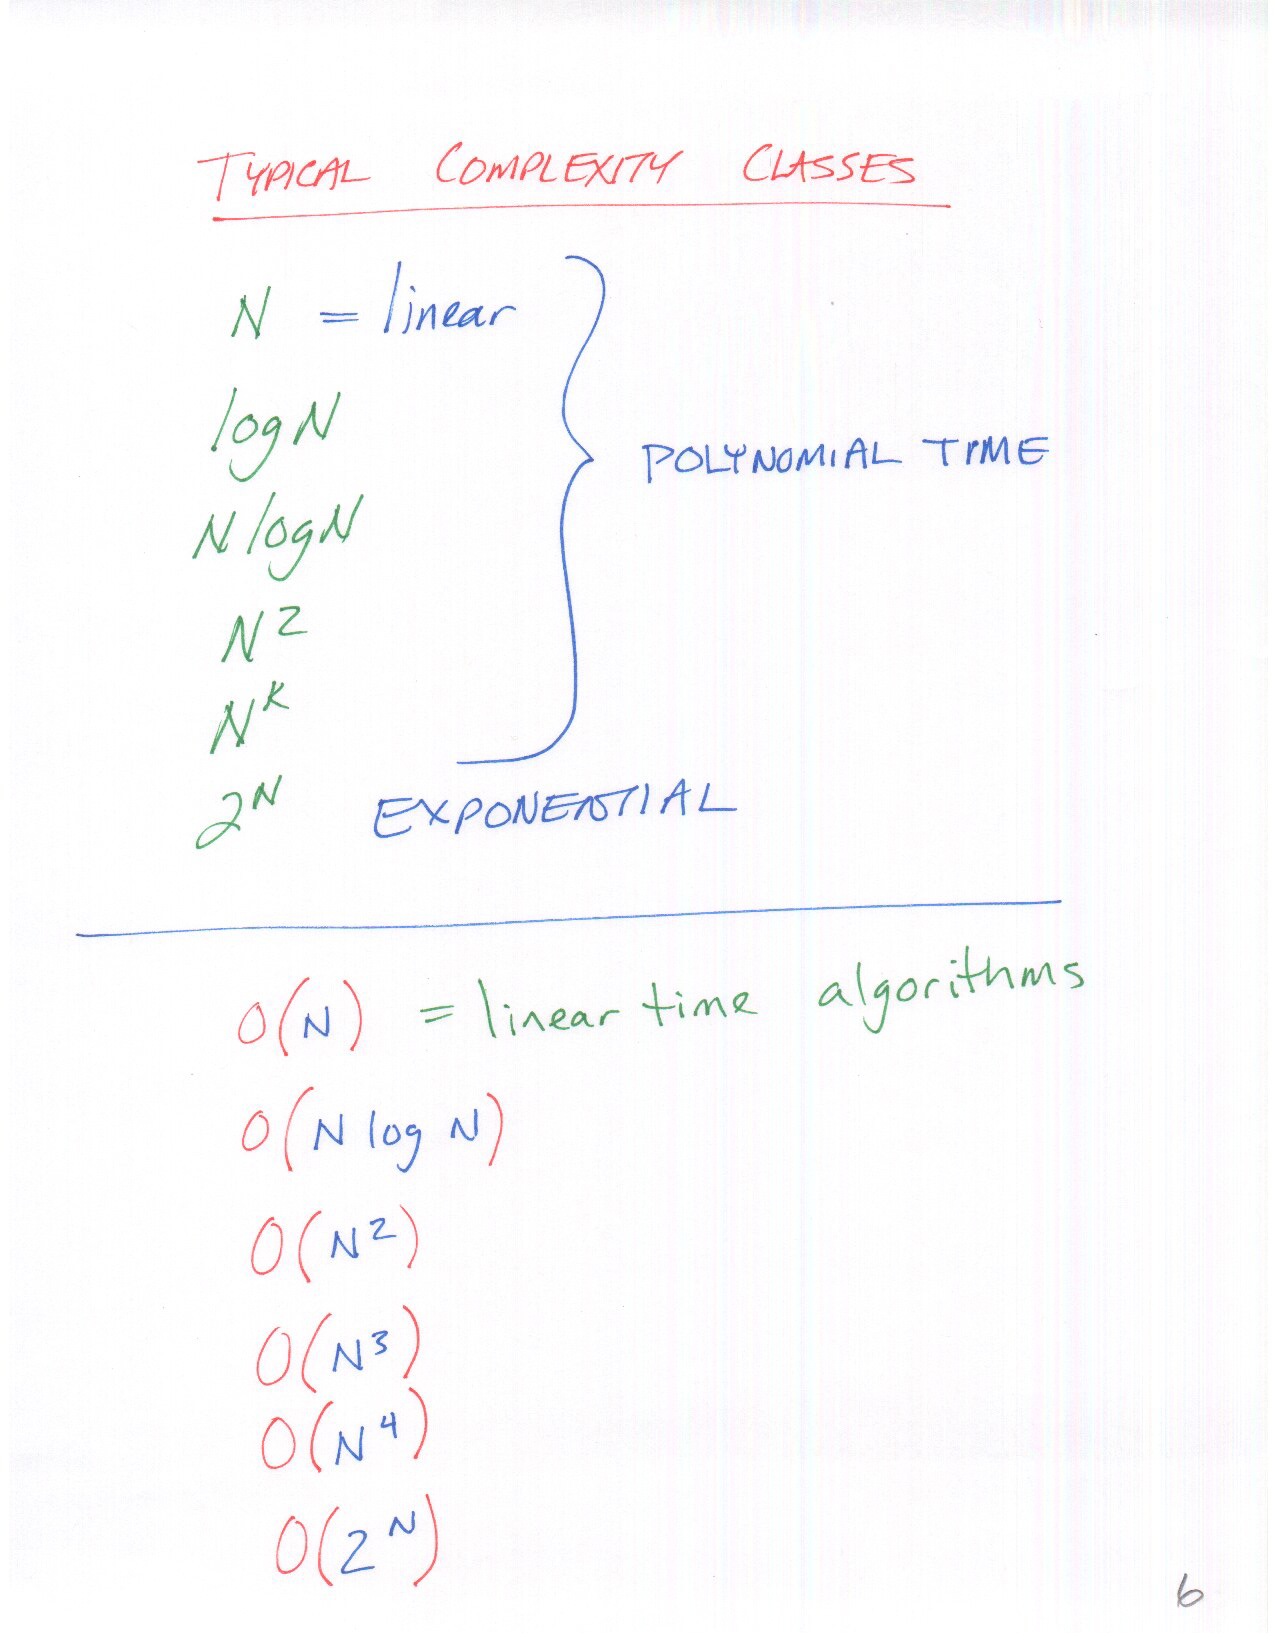 TYPICAL COMPLEXITY CLASSES
N = linear
log N
POLYNOMIAL TIME
N log N
N²
Nᴷ
2ᴺ EXPONENTIAL
O(N) = linear time algorithms
O(N log N)
O(N²)
O(N³)
O(N⁴)
O(2ᴺ)
6